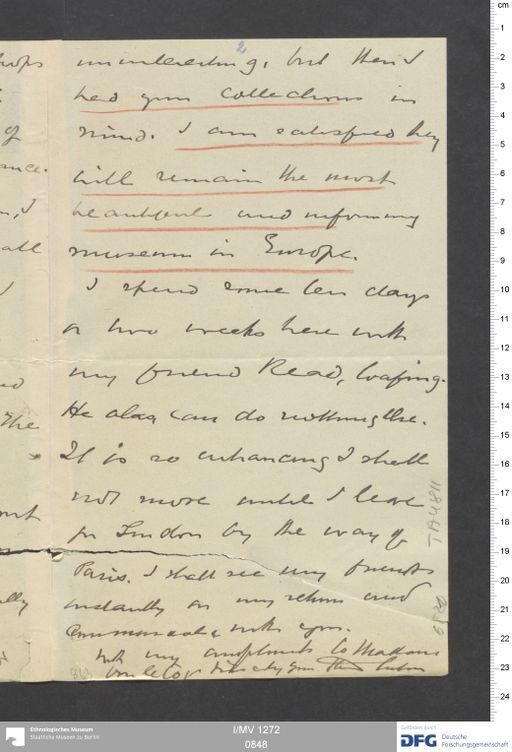 2
uninteresting, but then I
had your collections in
mind. I am satisfied they
will remain the most
beautiful and informing
museum in Europe.
I spend some ten days
or two weeks here with
my friend Read, loafing.
He also can do nothing else.
It is so entrancing I shall
not move until I leave
for London by the way of
Paris. I shall see my friends
instantly on my return and
communicate with you.
With my compliments to Madame
TA 4811
I/MV 1272
0848
Ethnologisches Museum
Staatliche Museen zu Berlin
Gefördert durch
DFG Deutsche
Forschungsgemeinschaft
cm
1
2
3
4
5
6
7
8
9
10
11
12
13
14
15
16
17
18
19
20
21
22
23
24